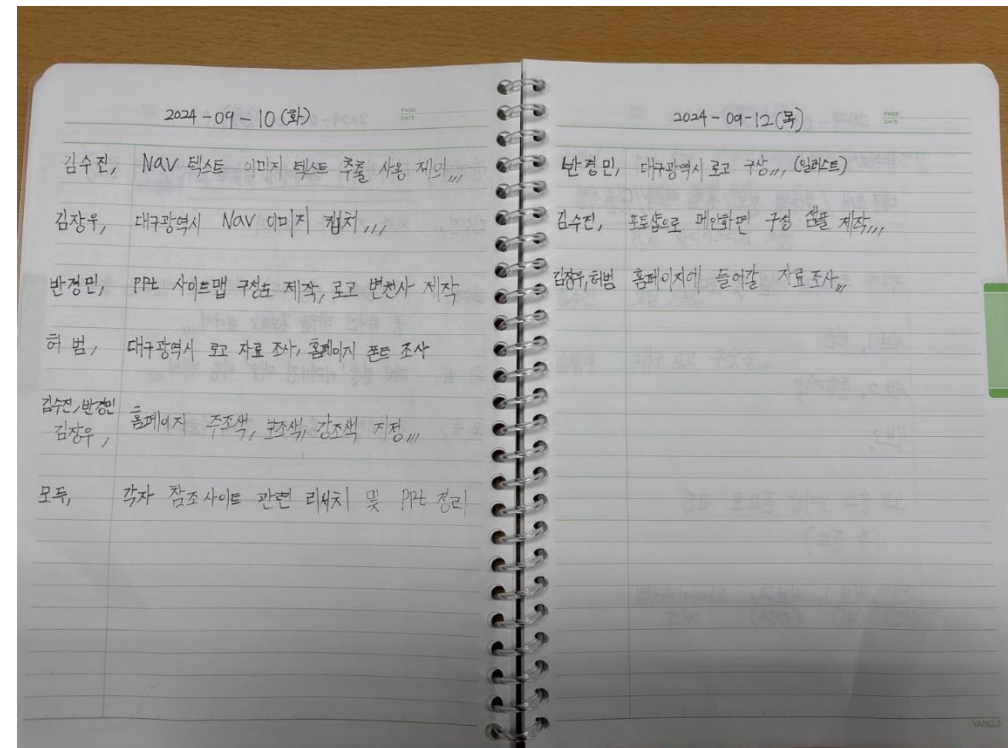 2024 - 09 - 10 (화)
PAGE
DATE
김수진, Nav 텍스트 이미지 텍스트 추출 사용 제의,,,
김장우, 대구광역시 Nav 이미지 캡처,,,
반경민, PPt 사이트맵 구성도 제작, 로고 변천사 제작
허 범, 대구광역시 로고 자료 조사, 홈페이지 폰트 조사
김수진,반경민
김장우, 홈페이지 주조색, 보조색, 강조색 지정,,,
모두, 각자 참조사이트 관련 리서치 및 PPt 정리
2024 - 09-12(목)
PAGE
DATE
반경민, 대구광역시 로고 구상,,, (일러스트)
김수진, 포토샵으로 메인화면 구성 샘플 제작,,,
김장우,허범 홈페이지에 들어갈 자료조사,,,
YANGJI